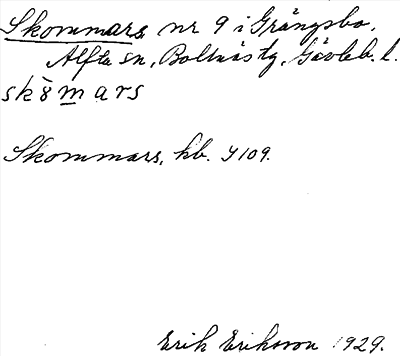 Skommars nr 9 i Grängsbo,
Alfta sn, Bollnäs tg, Gävleb. l.
skòm̲ars
Skommars, kb. Y 109.
Erik Eriksson 1929.